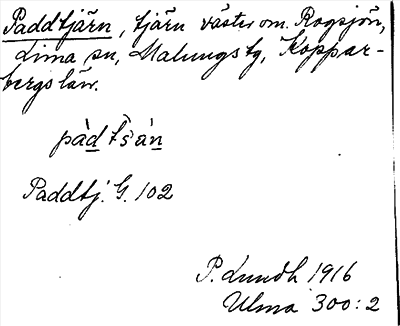 Paddtjärn, tjärn väster om Rogsjön,
Lima sn, Malungs tg, Koppar-
bergs län.
pàd tšán
Paddtj. G. 102
P. Lundh 1916
Ulma 300:2